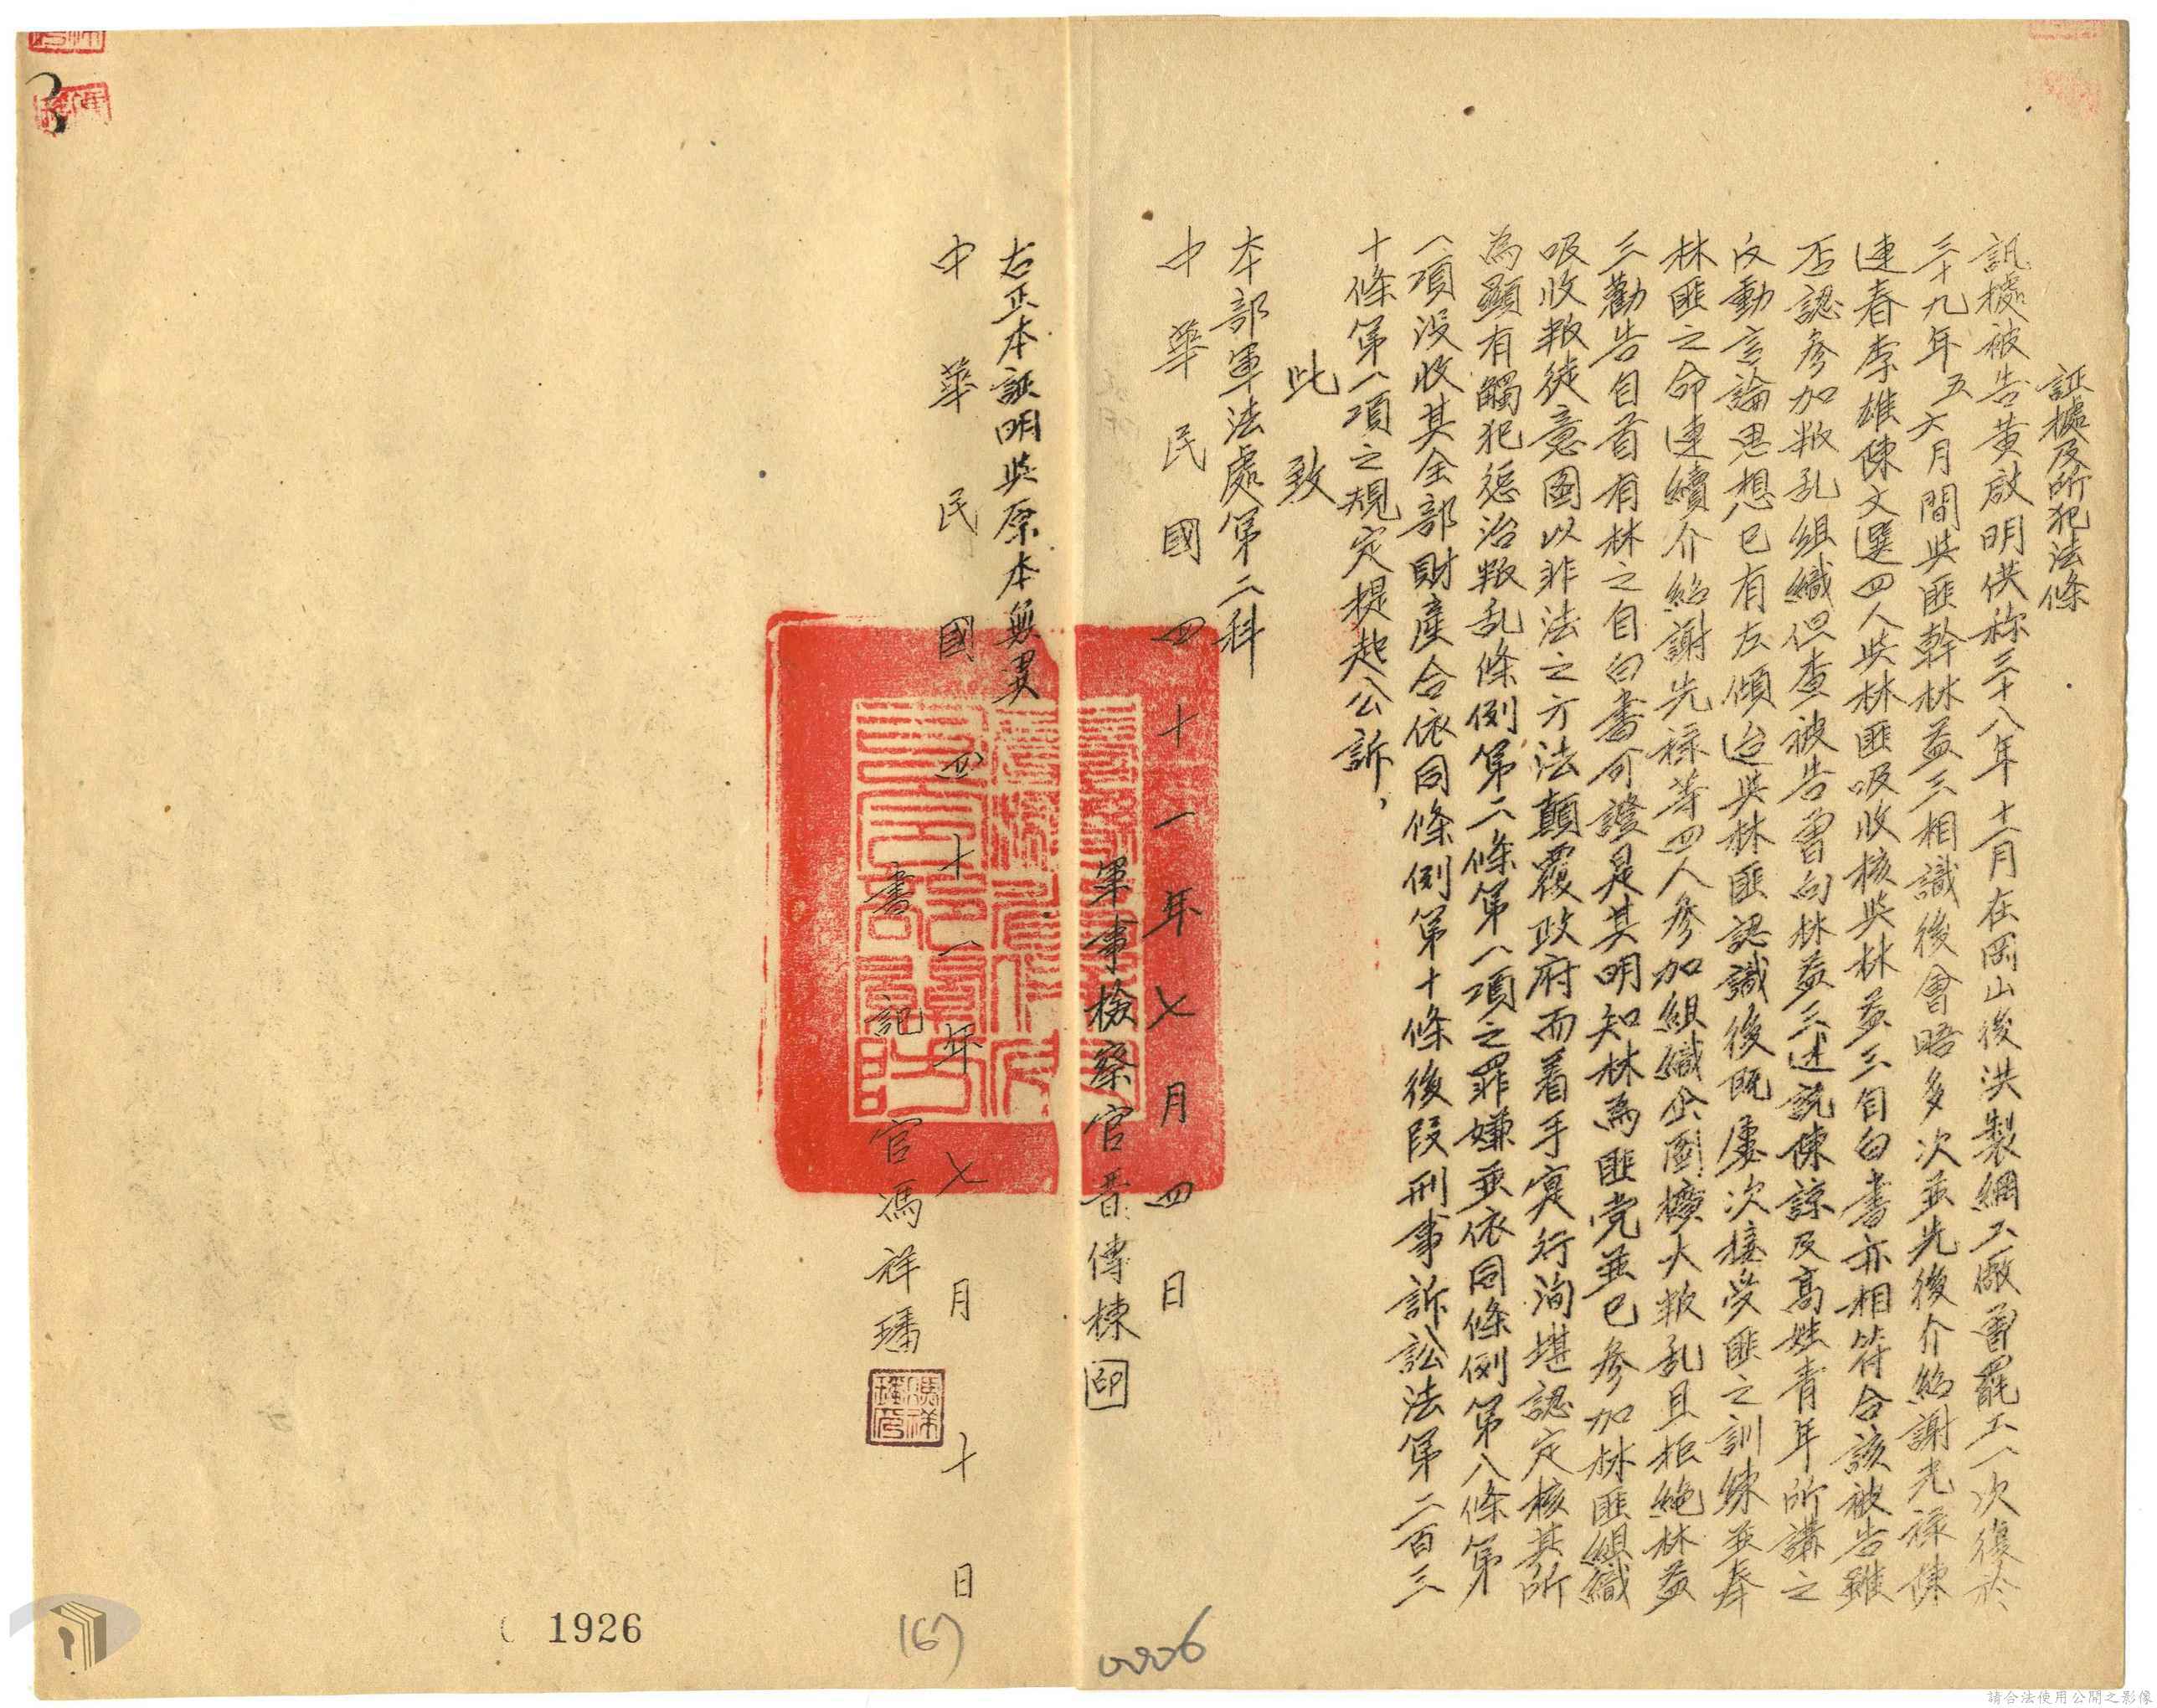 証據及所犯法條
訊據被告黃啟明供称三十八年十一月在岡山後洪製網工廠曾罷工一次復於
三十九年五六月間與匪幹林益三相識後會晤多次並先後介紹謝先祿陳
連春李雄陳文選四人與林匪吸收核與林益三自白書亦相符合該被告雖
否認參加叛乱組織但查被告曾向林益三述說陳諒及高姓青年所講之
反動言論思想已有左傾迨與林匪認識後既屢次接受匪之訓練並奉
林匪之命連續介紹謝先祿等四人參加組織企圖擴大叛乱且拒絕林益
三勸告自首有林之自白書可證是其明知林為匪党並已參加林匪組織
吸收叛徒意圖以非法之方法顛覆政府而着手實行洵堪認定核其所
為顯有觸犯懲治叛乱條例第二條第一項之罪嫌並依同條例第八條第
一項沒收其全部財產合依同條例第十條後段刑事訴訟法第二百三
十條第一項之規定提起公訴，
此致
本部軍法處第二科
中華民國四十一年七月四日
軍事檢察官昔傳棟印
右正本証明與原本無異
中華民國四十一年七月十日
書記官馮祥璠
1926
(6)
0006
請合法使用公開之影像